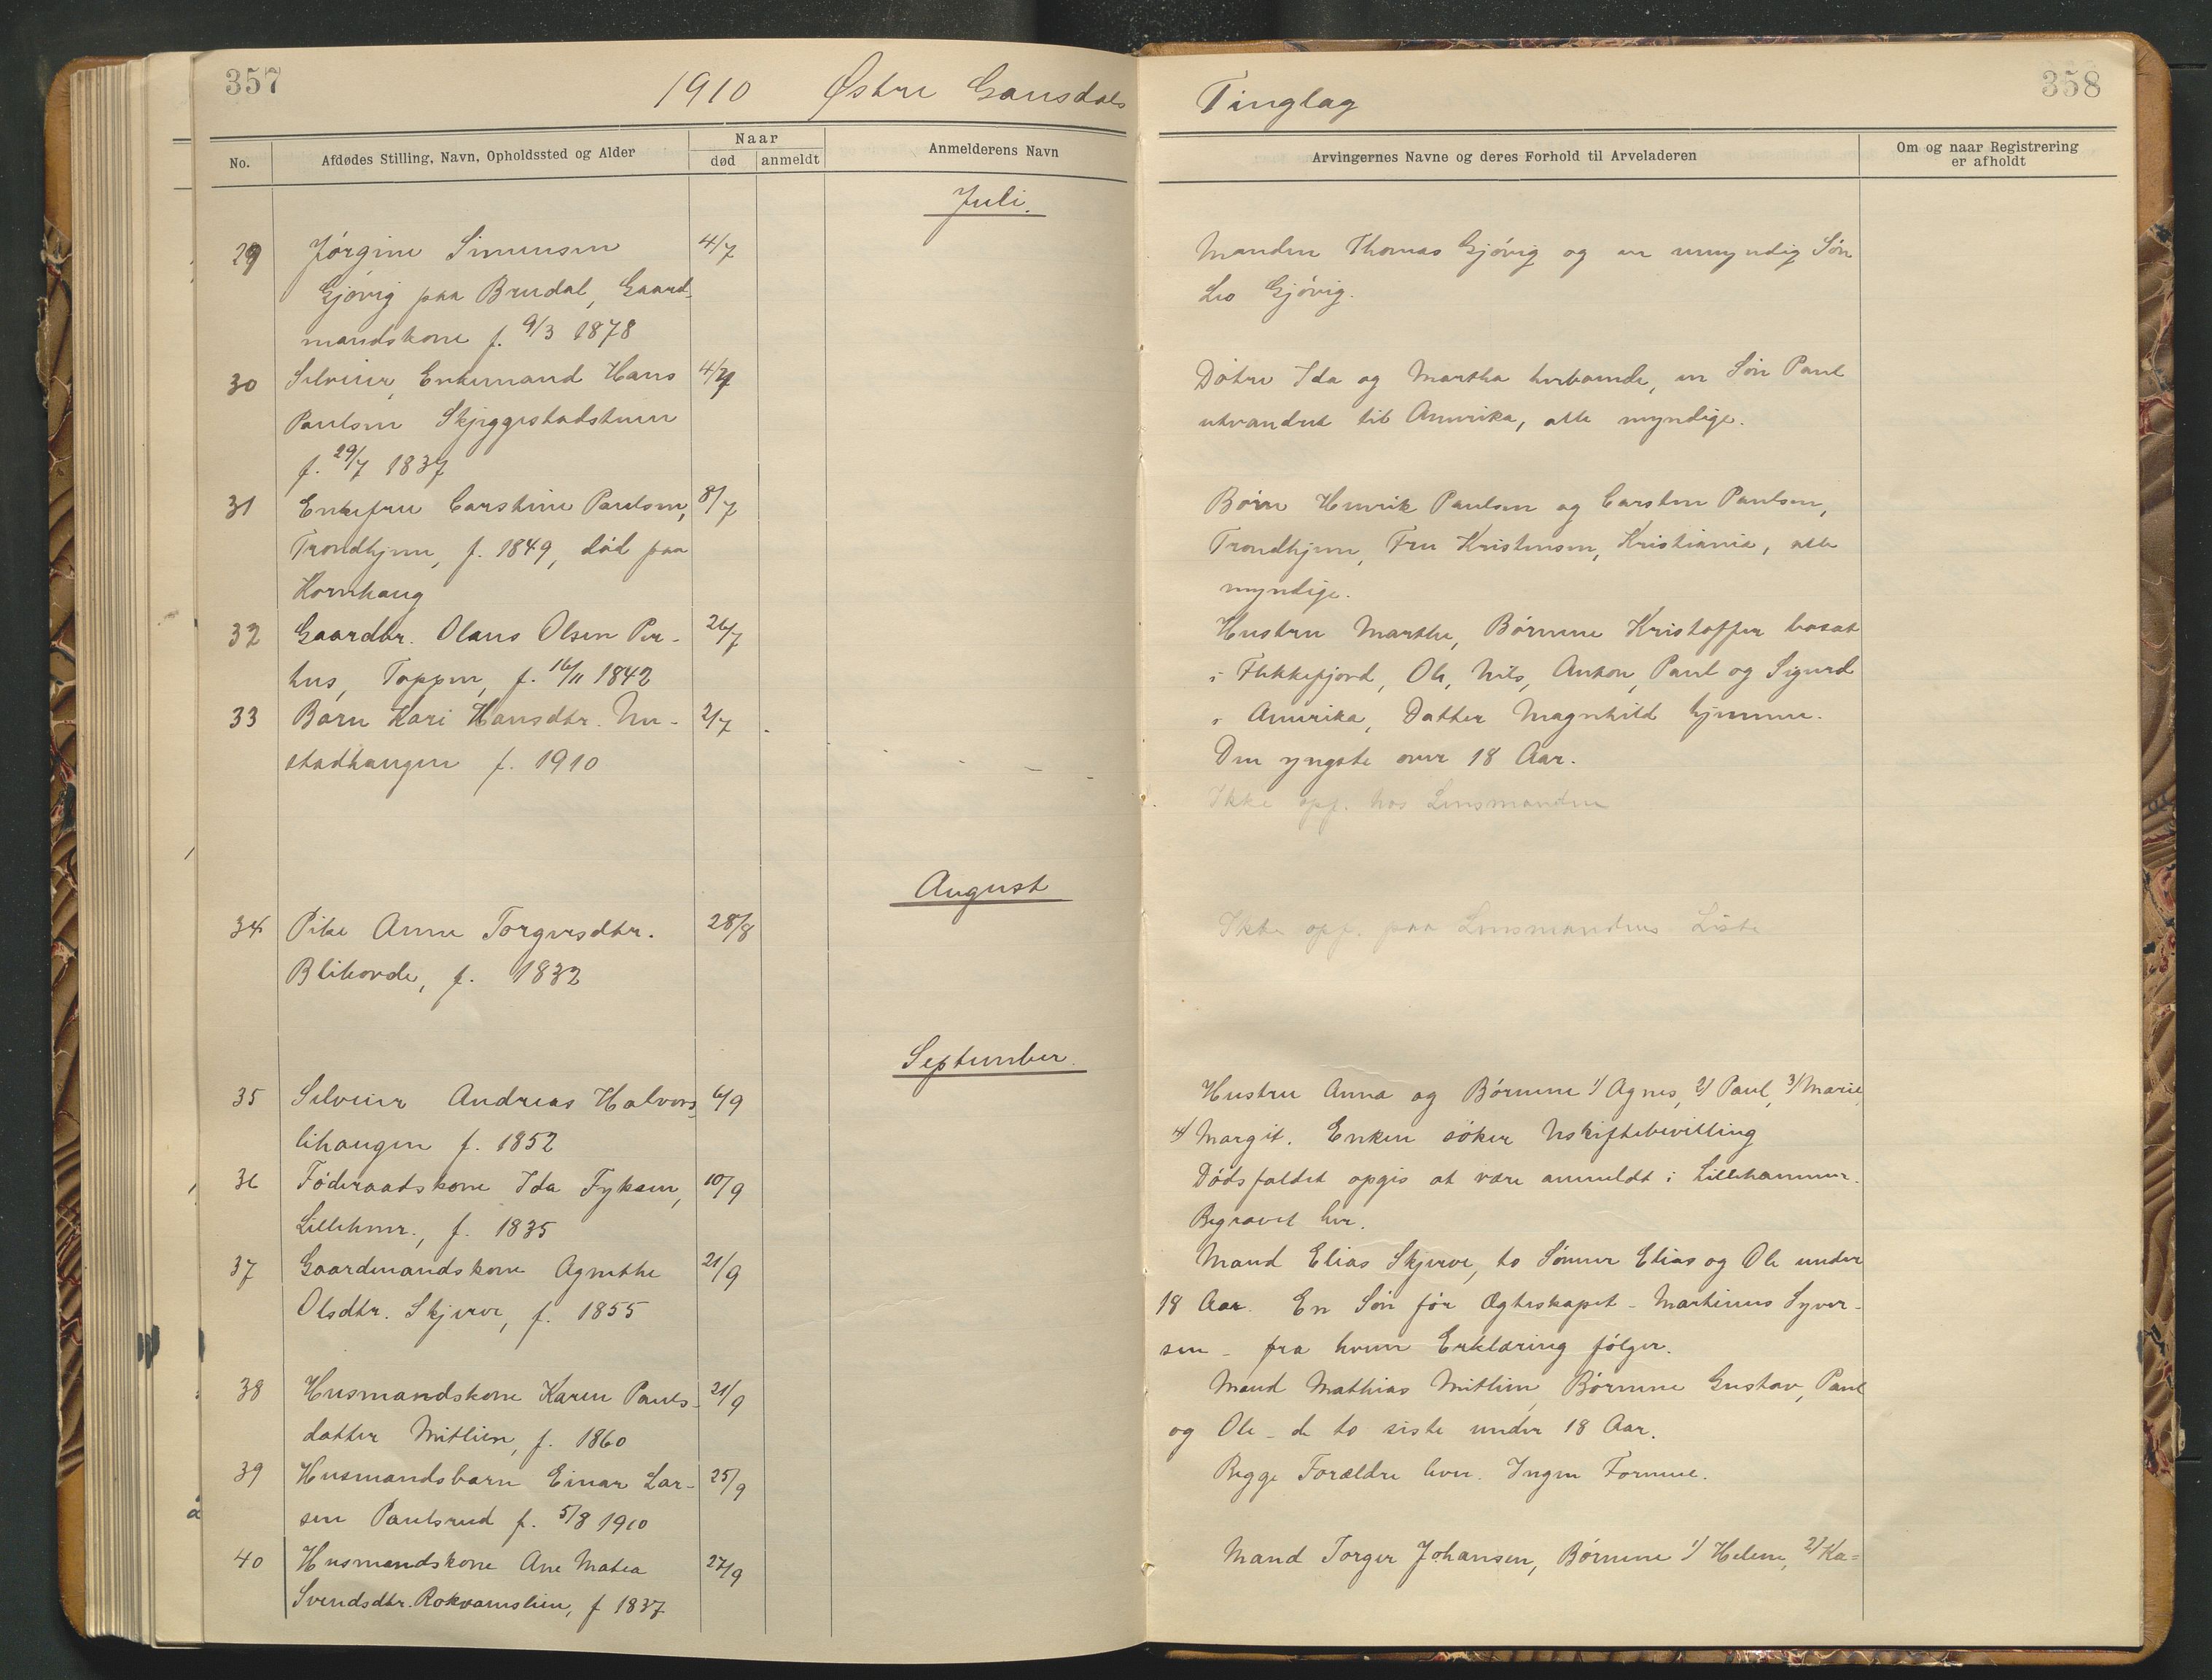 357
1910 Østre Gausdals
No.
Afdødes Stilling, Navn, Opholdssted og Alder
Naar
død
anmeldt
Anmelderens Navn
Juli.
29 Jørgine Simensen 4/7
Gjøvig paa Brudal, Gaard-
mandskone f. 9/3 1878
30 Selveier, Enkemand Hans 4/7
Paulsen Skjeggestadstuen
f. 29/7 1837
31 Enkefru Carstine Paulsen, 8/7
Trondhjem, f. 1849, død paa
Kornhaug
32 Gaardbr. Olaus Olsen Per- 26/7
hus, Toppen, f. 16/11 1842
33 Barn Kari Hansdtr. Nu- 2/7
stadhaugen f. 1910
August
34 Pike Anne Torgersdtr. 28/8
Blihovde, f. 1832
September.
35 Selveier Andreas Halvors- 6/9
lihaugen f. 1852
36 Føderaadskone Ida Fyksen, 10/9
Lillehmr., f. 1835
37 Gaardmandskone Agnethe 21/9
Olsdtr. Skjerve, f. 1855
38 Husmandskone Karen Pauls- 21/9
datter Mitlien, f. 1860
39 Husmandsbarn Einar Lar- 25/9
sen Paulsrud f. 5/8 1910
40 Husmandskone Ane Matea 27/9
Svendsdtr. Rokvamslien, f 1837
358
Tinglag
Arvingernes Navne og deres Forhold til Arveladeren
Om og naar Registrering
er afholdt
Manden Thomas Gjøvig og en umyndig Søn
Leo Gjøvig.
Døtre Ida og Martha herboende, en Søn Paul
utvandret til Amerika, alle myndige.
Børn Henrik Paulsen og Carsten Paulsen,
Trondhjem, Fru Kristensen, Kristiania, alle
myndige.
Hustru Marthe, Børnene Kristoffer bosat
i Flekkefjord, Ole, Nils, Anton, Paul og Sigurd
i Amerika, Datter Magnhild hjemme.
Den yngste over 18 Aar.
Ikke opf. hos Lensmanden
Ikke opf. paa Lensmandens Liste
Hustru Anna og Børnene 1/ Agnes, 2/ Paul, 3/ Marie,
4/ Margit. Enken søker Uskiftebevilling
Dødsfaldet opgis at være anmeldt i Lillehammer.
Begravet her.
Mand Elias Skjerve, to Sønner Elias og Ole under
18 Aar. En Søn før Ægteskapet - Martinus Syver-
sen - fra hvem Erklæring følger.
Mand Mathias Mitlien, Børnene Gustav, Paul
og Ole - de to siste under 18 Aar.
Begge Forældre lever. Ingen Formue.
Mand Torger Johansen, Børnene 1/ Helene, 2/ Ka=